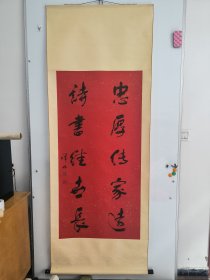 忠厚传家远
诗书继世长